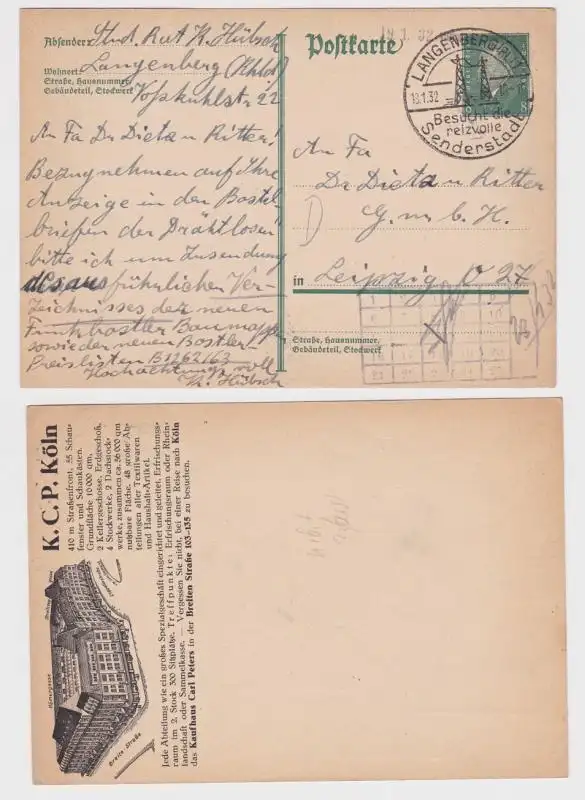 Absender: Stud. Rat K. Hübsch
Wohnort: Langenberg (Rhld)
Straße, Hausnummer,
Gebäudeteil, Stockwerk
Voßkuhlstr. 22
An Fa Dr Dietz u Ritter!
Bezugnehmen auf Ihre
Anzeige in den Bastel
briefen der Drahtlosen
bitte ich um Zusendung
des ausführlichen Ver-
zeichnisses der neuen
Funkbastler Baumappe
sowie der neuen Bastler
Preislisten B1262/63
Hochachtungsvoll
K. Hübsch
Postkarte
19 1. 32
LANGENBERG (RHLD)
18.1.32
Besucht die
reizvolle
Senderstadt
8
An Fa
Dr Dietz u Ritter
G. m. b. H.
in Leipzig O 27
Straße, Hausnummer,
Gebäudeteil, Stockwerk
K. C. P. Köln
410 m Straßenfront, 55 Schau-
fenster und Schaukästen.
Grundfläche 10 000 qm,
2 Kellergeschosse, Erdgeschoß,
4 Stockwerke, 2 Dachstock-
werke, zusammen ca. 36 000 qm
nutzbare Fläche. 48 große Ab-
teilungen aller Textilwaren
und Haushalt-Artikel.
Jede Abteilung wie ein großes Spezialgeschäft eingerichtet und geleitet. Erfrischungs-
raum im 2. Stock 300 Sitzplätze. Treffpunkte: Erfrischungsraum oder Rhein-
landschaft oder Sammelkasse. — Vergessen Sie nicht, bei einer Reise nach Köln
das Kaufhaus Carl Peters in der Breiten Straße 103-135 zu besuchen.
Breite Straße